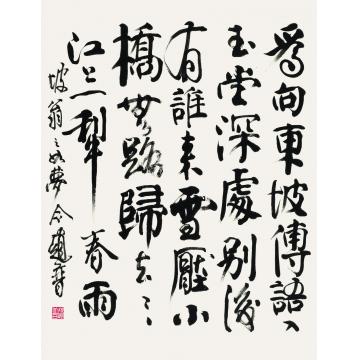 爲向東坡傳語人
玉堂深處別後
有誰来雪壓小
橋無路歸去〻
江上一犁春雨
坡翁之如夢令